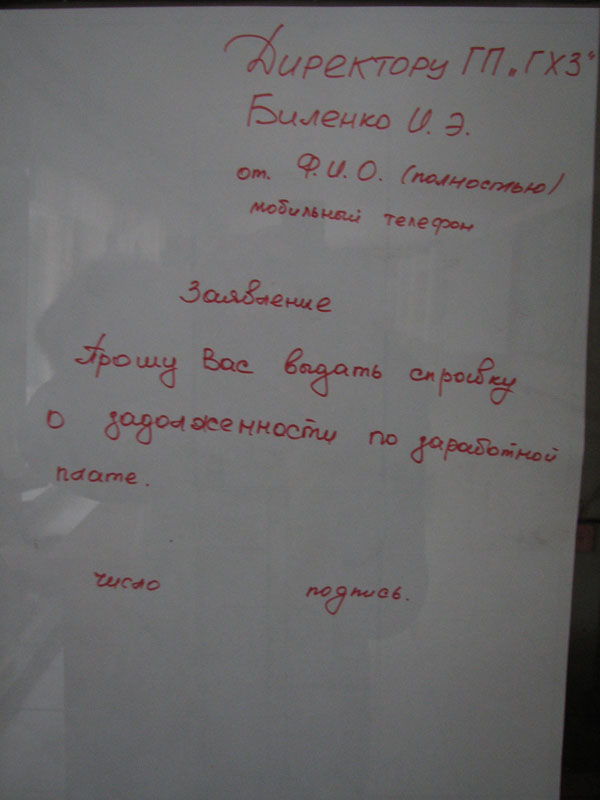 Директору ГП „ГХЗ“
Биленко И. Э.
от. Ф.И.О. (полностью)
мобильный телефон
Заявление
Прошу Вас выдать справку
о задолженности по заработной
плате.
число подпись.